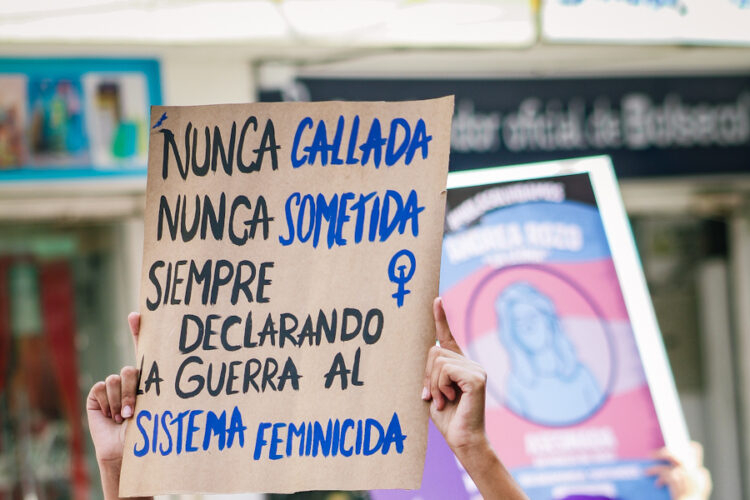 NUNCA CALLADA
NUNCA SOMETIDA
SIEMPRE
DECLARANDO
LA GUERRA AL
SISTEMA FEMINICIDA
oficial de